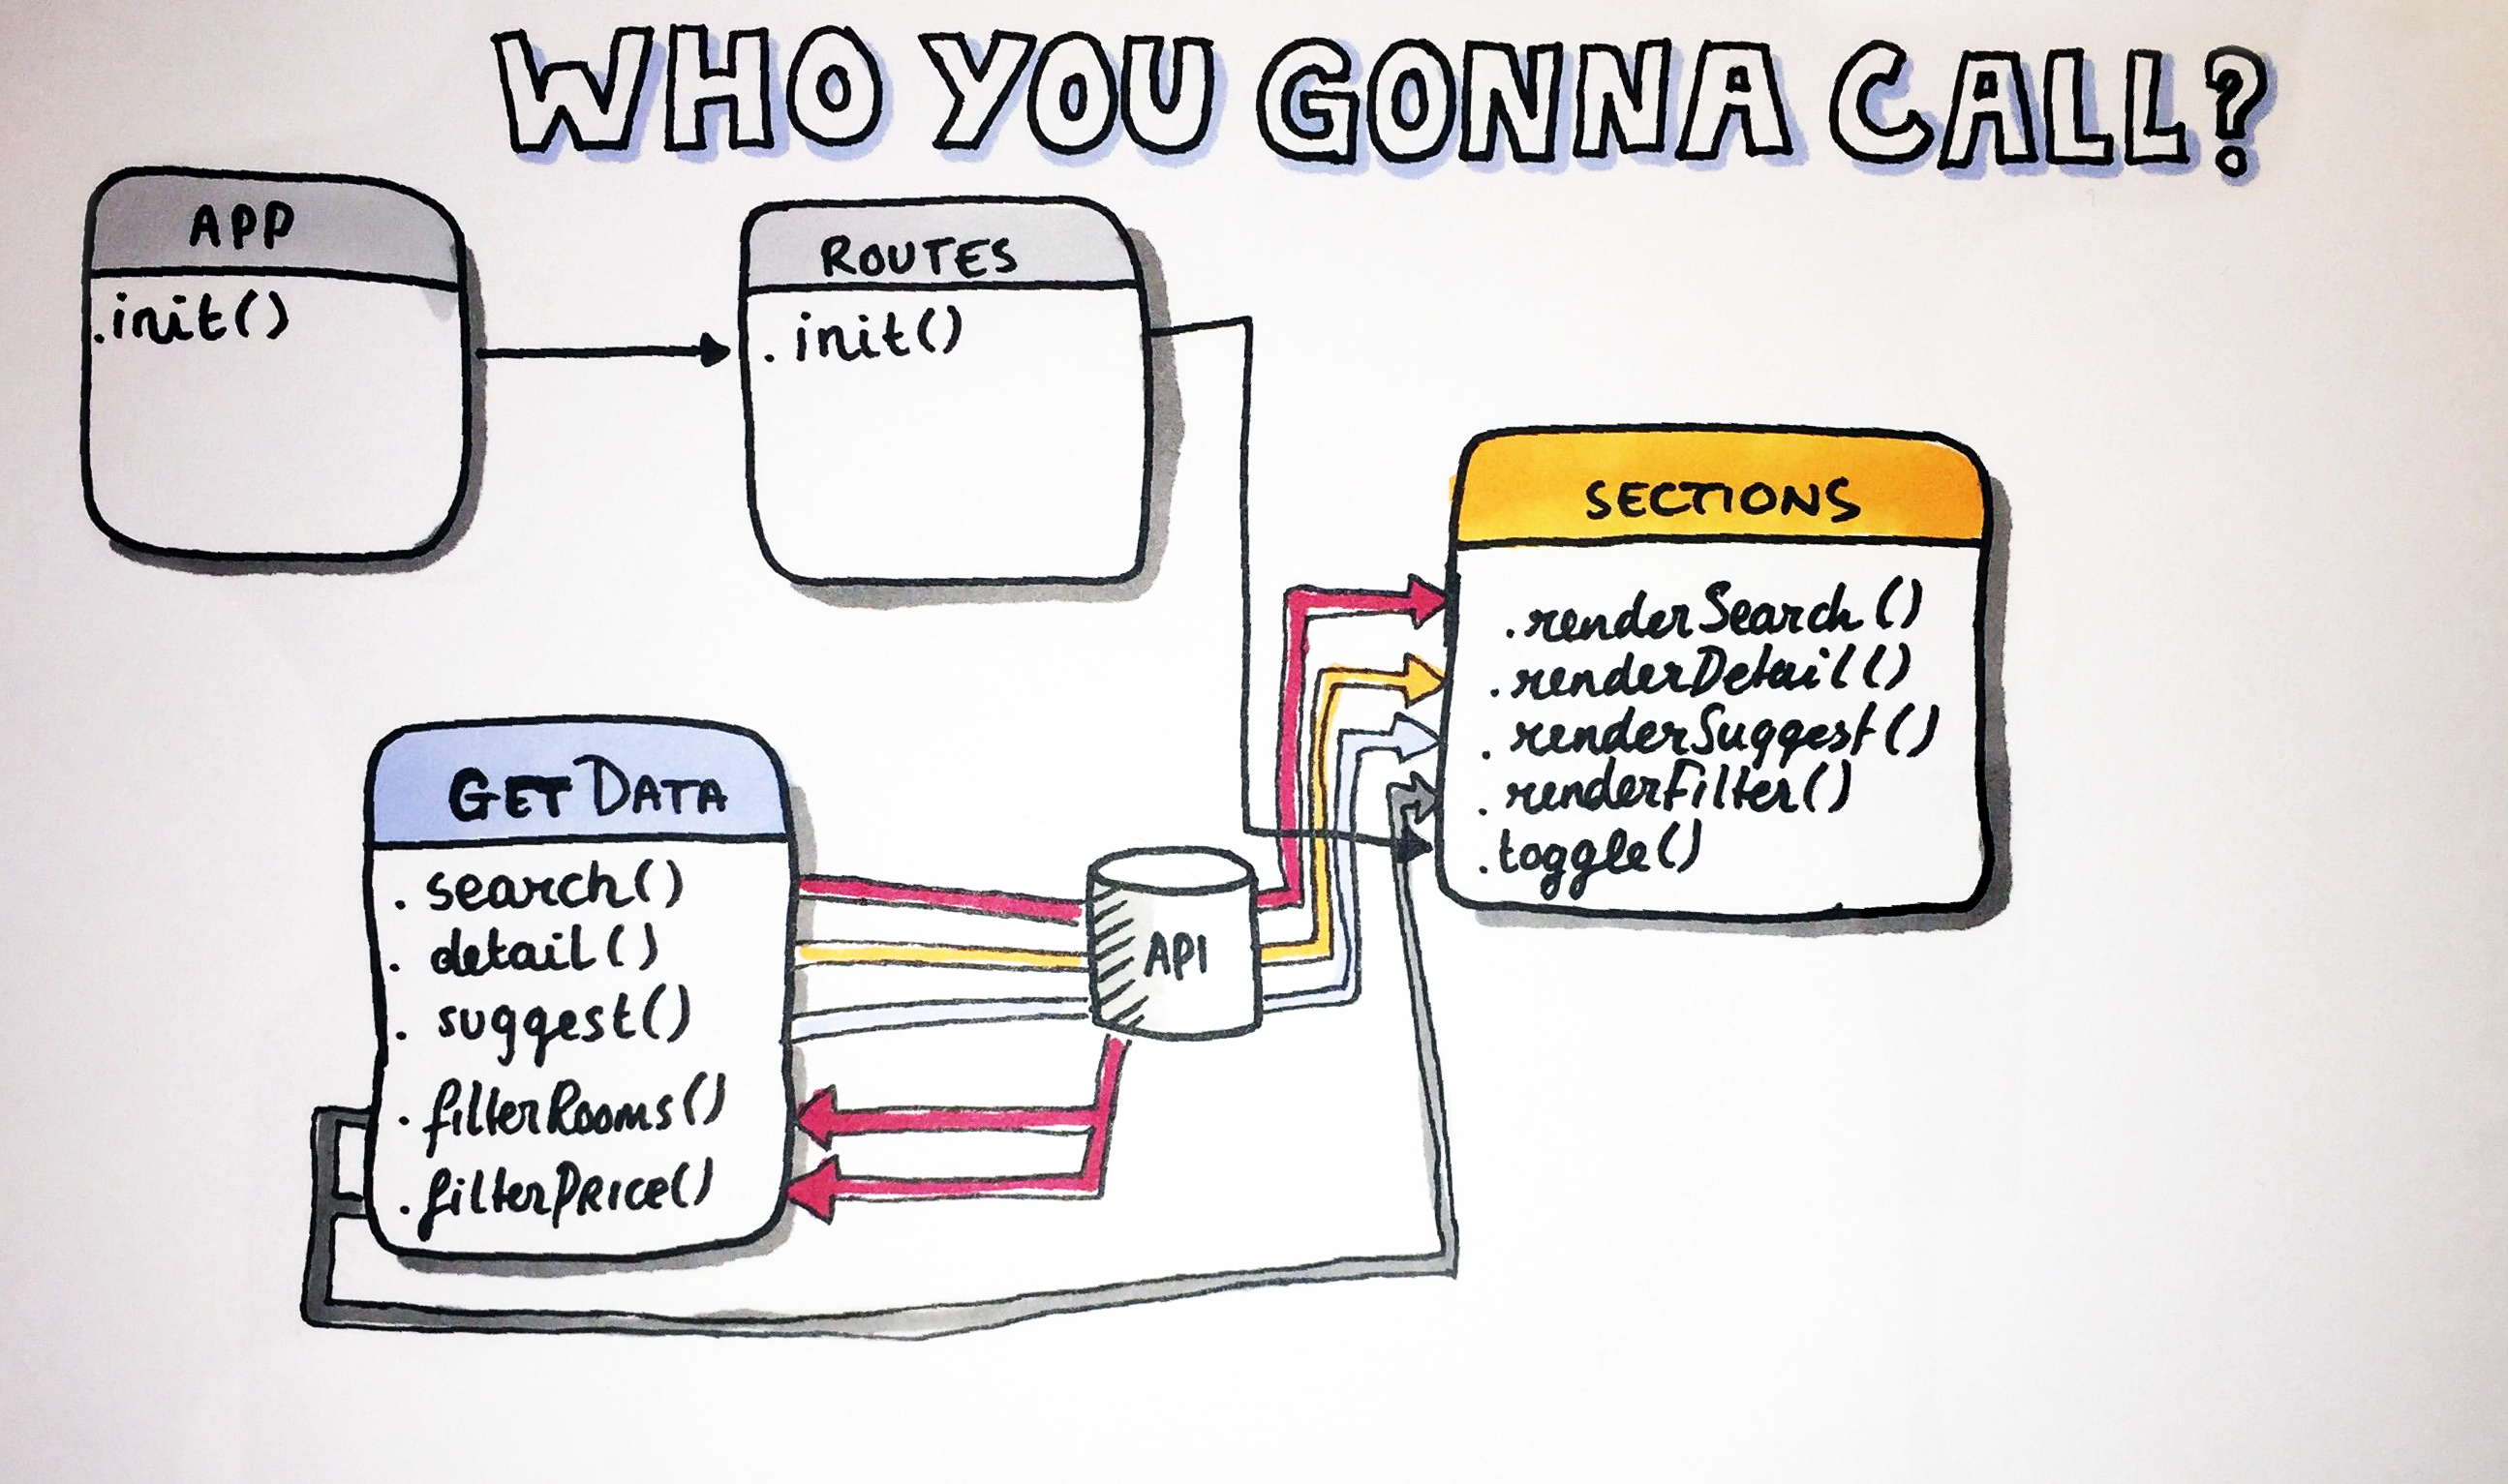 WHO YOU GONNA CALL?
APP
.init()
ROUTES
.init()
SECTIONS
.renderSearch()
.renderDetail()
.renderSuggest()
.renderFilter()
.toggle()
GET DATA
.search()
.detail()
.suggest()
.filterRooms()
.filterPrice()
API